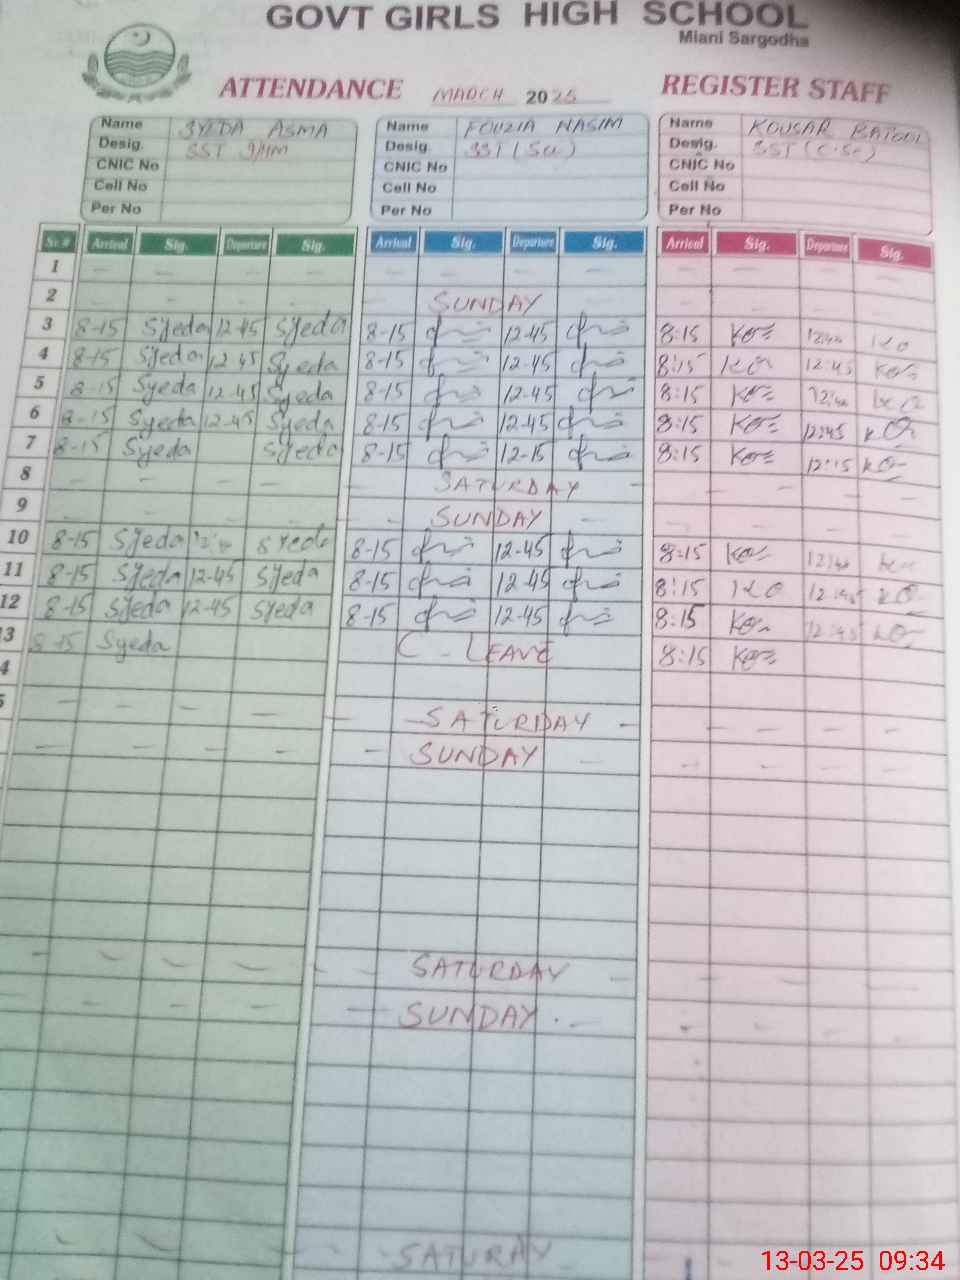 GOVT GIRLS HIGH SCHOOL
Miani Sargodha
ATTENDANCE MARCH 2025 REGISTER STAFF
Name SYEDA ASMA Name FOUZIA NASIM Name KOUSAR BATOOL
Desig. SST Desig. SST (Sci) Desig. SST (C.Sc)
CNIC No CNIC No CNIC No
Cell No Cell No Cell No
Per No Per No Per No
Sr.# Arrival Sig. Departure Sig. Arrival Sig. Departure Sig. Arrival Sig. Departure Sig.
1
2 SUNDAY
3 8-15 Syeda 12-45 Syeda 8-15 12-45 8:15
4 8-15 Syeda 12-45 Syeda 8-15 12-45 8:15 12:45
5 8-15 Syeda 12-45 Syeda 8-15 12-45 8:15
6 8-15 Syeda 12-45 Syeda 8-15 12-45 8:15 12:45
7 8-15 Syeda Syeda 8-15 12-15 8:15 12:15
8 SATURDAY
9 SUNDAY
10 8-15 Syeda Syeda 8-15 12-45 8:15
11 8-15 Syeda 12-45 Syeda 8-15 12-45 8:15 12:45
12 8-15 Syeda 12-45 Syeda 8-15 12-45 8:15 12:45
13 8-15 Syeda C-LEAVE 8:15
4
5 SATURDAY
SUNDAY
SATURDAY
SUNDAY
SATURAY
13-03-25 09:34